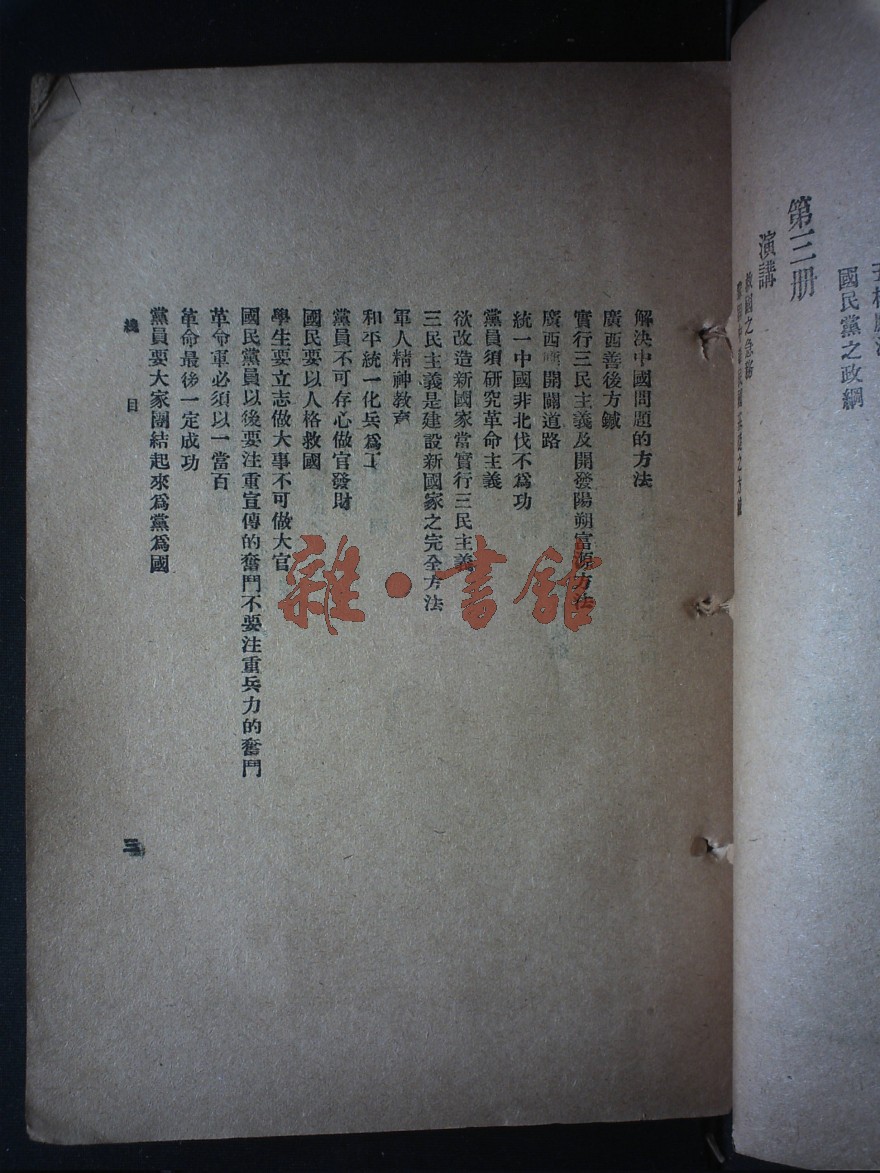 國民黨之政綱
第三册
演講
救國之急務
解決中國問題的方法
廣西善後方鍼
實行三民主義及開發陽朔富源方法
廣西 開闢道路
統一中國非北伐不爲功
黨員須研究革命主義
欲改造新國家當實行三民主義
三民主義是建設新國家之完全方法
軍人精神教育
和平統一化兵爲工
黨員不可存心做官發財
國民要以人格救國
學生要立志做大事不可做大官
國民黨員以後要注重宣傳的奮鬥不要注重兵力的奮鬥
革命軍必須以一當百
革命最後一定成功
黨員要大家團結起來爲黨爲國
總目
三
雜·書館